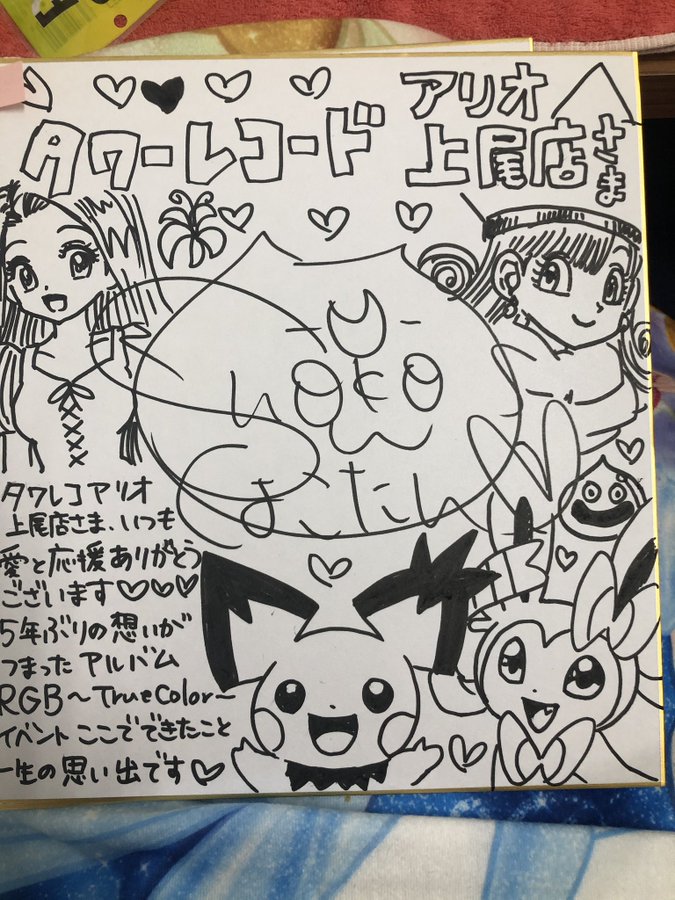 タワーレコード
アリオ
上尾店さま
しょこたん
タワレコアリオ
上尾店さま、いつも
愛と応援ありがとう
ございます♡♡♡
5年ぶりの想いが
つまったアルバム
RGB〜True Color〜
イベントここでできたこと
一生の思い出です♡